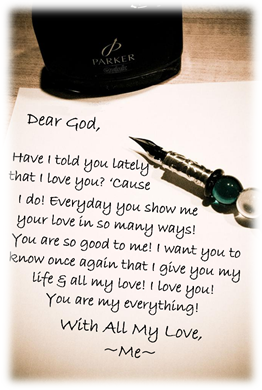 PARKER
Dear God,
Have I told you lately
that I love you? 'Cause
I do! Everyday you show me
your love in so many ways!
You are so good to me! I want you to
know once again that I give you my
life & all my love! I love you!
You are my everything!
With All My Love,
~Me~